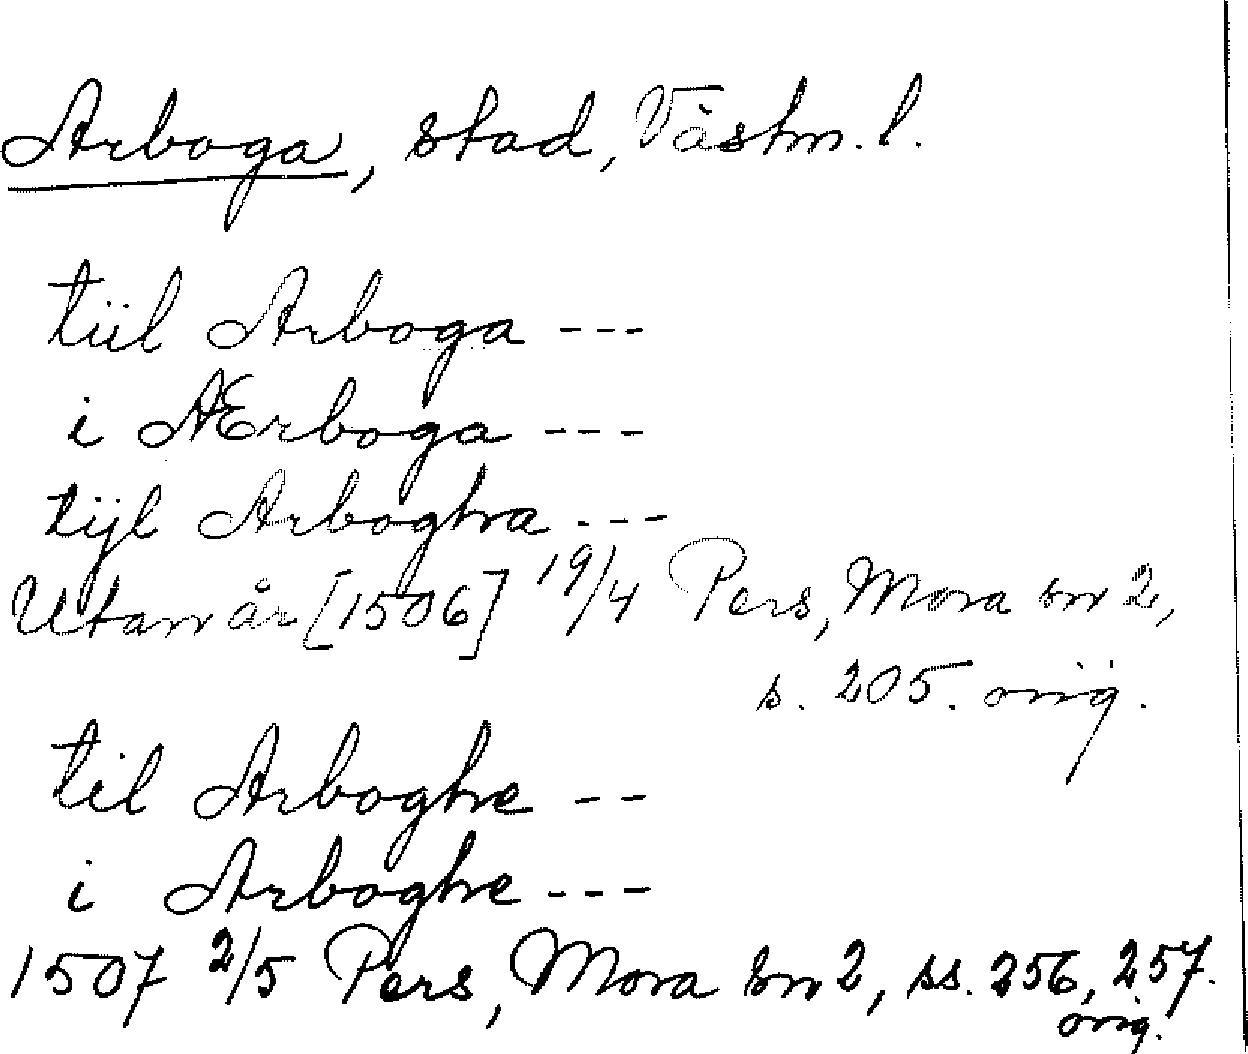 Arboga, stad, Västm. l.
tiil Arboga ---
i AErboga ---
tijl Arbogha ---
Utan år [1506] 19/4 Pers, Mora sn 2,
s. 205. orig.
til Arboghe --
i Arboghe ---
1507 2/5 Pers, Mora sn 2, ss. 256, 257.
orig.